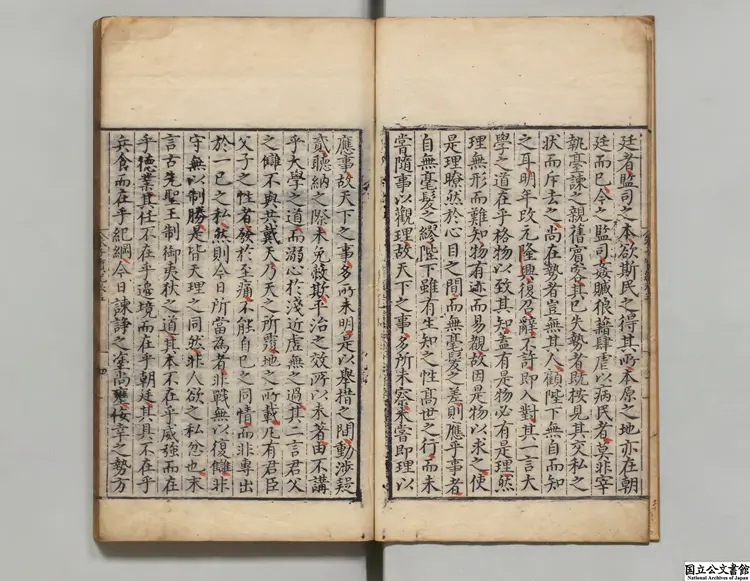 廷者監司之本欲斯民之得其所本原之地亦在朝
廷而已今之監司姦贓狼藉肆虐以病民者莫非宰
執臺諫之親舊賓客其已失勢者既按見其交私之
狀而斥去之尚在勢者豈無其人顧陛下無自而知
之耳明年改元隆興復召辭不許即入對其一言大
學之道在乎格物以致其知蓋有是物必有是理然
理無形而難知物有迹而易觀故因是物以求之使
是理瞭然於心目之間而無毫髮之差則應乎事者
自無毫髮之繆陛下雖有生知之性髙世之行而未
嘗隨事以觀理故天下之事多所未察未嘗即理以
應事故天下之事多所未明是以舉措之間動涉疑
貳聽納之際未免蔽欺平治之效所以未著由不講
乎大學之道而溺心於淺近虛無之過其二言君父
之讎不與共戴天乃天之所覆地之所載凡有君臣
父子之性者發於至痛不能自已之同情而非專出
於一己之私然則今日所當為者非戰無以復讎非
守無以制勝是皆天理之同然非人欲之私忿也末
言古先聖王制御夷狄之道其本不在乎威強而在
乎德業其任不在乎邊境而在乎朝廷其具不在乎
兵食而在乎紀綱今日諫諍之塗尚壅佞幸之勢方
国立公文書館
National Archives of Japan